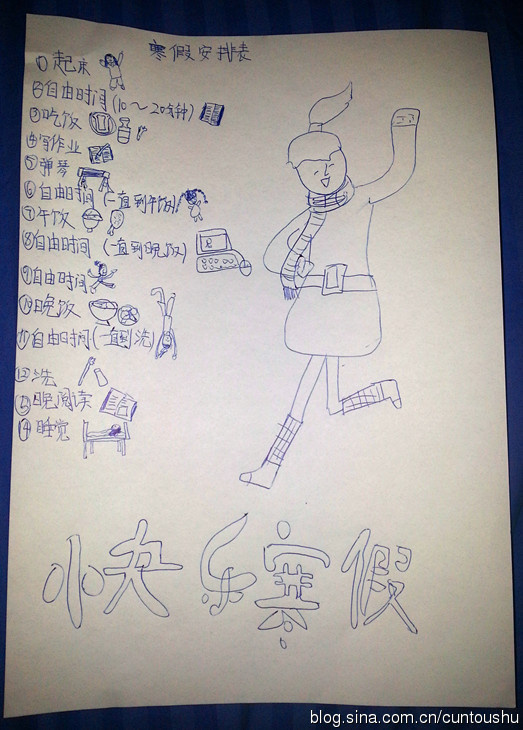 寒假安排表
①起床
②自由时间(10~20分钟)
③吃饭
④写作业
⑤弹琴
⑥自由时间(一直到午饭)
⑦午饭
⑧自由时间(一直到晚饭)
⑨自由时间
⑩晚饭
⑪自由时间(一直到洗)
⑫洗
⑬晚阅读
⑭睡觉
快乐寒假
blog.sina.com.cn/cuntoushu